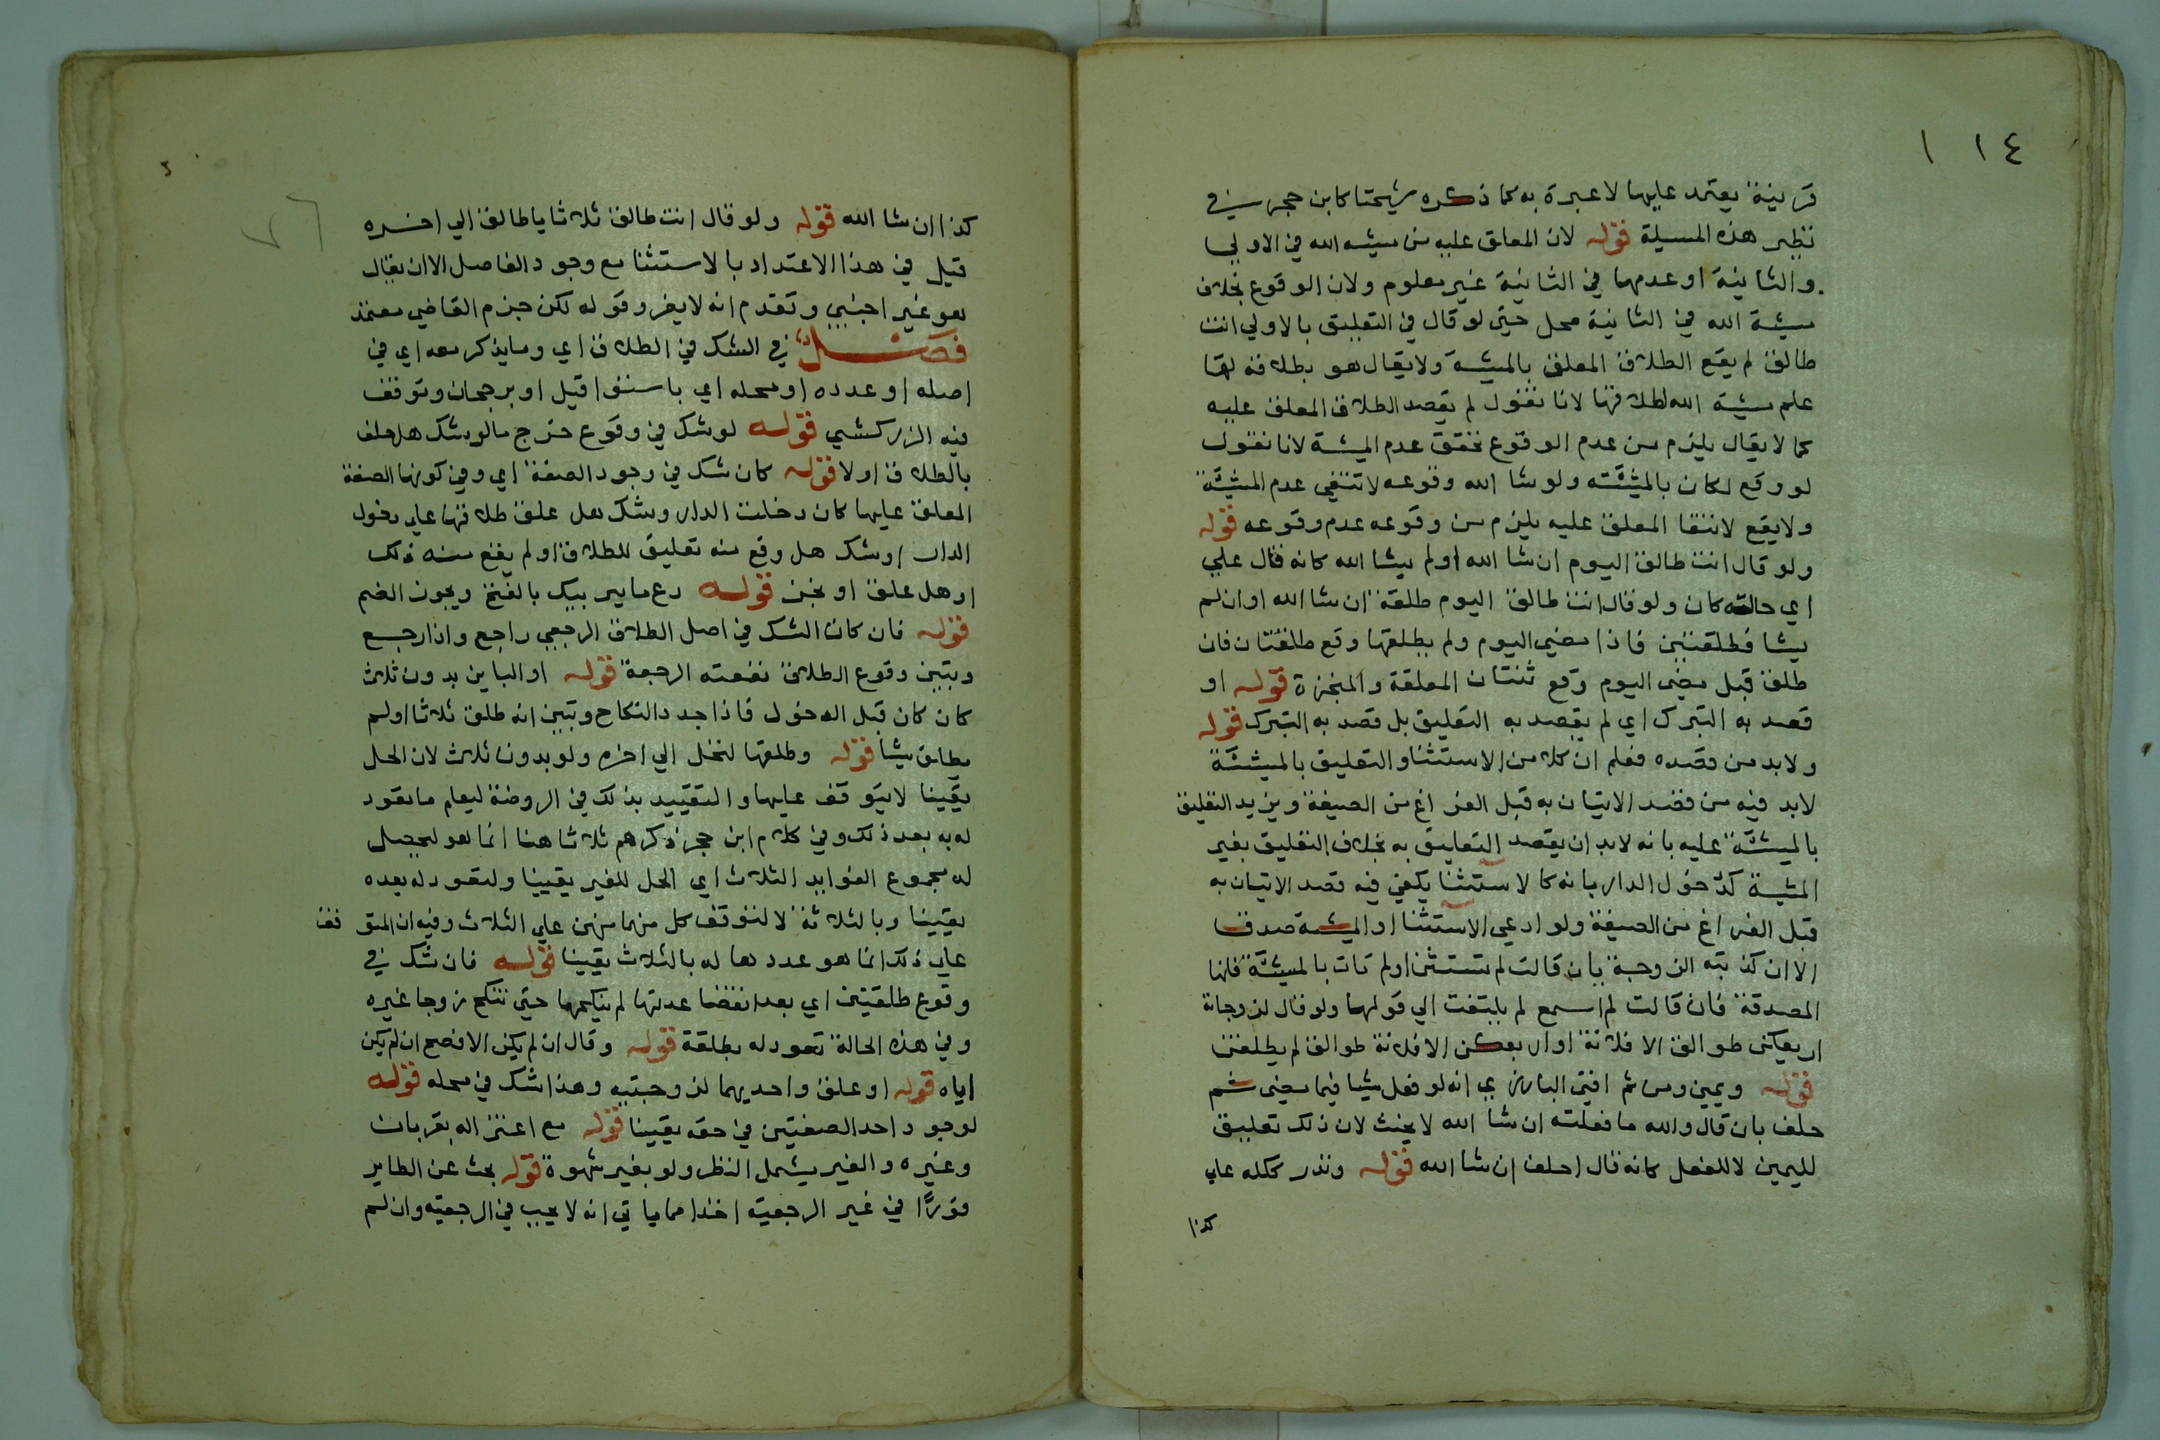 ١ ١٤
قرينة يعتمد عليها لا عبرة به كما ذكره شيخنا كابن حجر في
نظير هذه المسيلة قوله لان المعلق عليه من مشية الله في الاولي
والثانية او عدمها في الثانية غير معلوم ولان الوقوع بخلاف
مشية الله في الثانية محل حتي لو قال في التعليق بالاولي انت
طالق لم يقع الطلاق المعلق بالمشية ولا يقال هو بطلاقه لها
علم مشية الله لطلاقها لانا نقول لم يقصد الطلاق المعلق عليه
كما لا يقال يلزم من عدم الوقوع تحقق عدم المشية لانا نقول
لو وقع لكان بالمشيئته ولو شا الله وقوعه لانتفي عدم المشيئة
ولا يقع لانتفا المعلق عليه يلزم من وقوعه عدم وقوعه قوله
ولو قال انت طالق اليوم ان شا الله او لم يشا الله كانه قال علي
اي حالة كان ولو قال انت طالق اليوم طلقة ان شا الله او ان لم
يشا فطلقتين فاذا مضي اليوم ولم يطلقها وقع طلقتان فان
طلق قبل مضي اليوم وقع ثنتان المعلقة والمنجزة قوله او
قصد به التبرك اي لم يقصد به التعليق بل قصد به التبرك قوله
ولا بد من قصده فعلم ان كلا من الاستثنا والتعليق بالمشيئة
لابد فيه من قصد الاتيان به قبل الفراغ من الصيغة ويزيد التعليق
بالمشيئة عليه بانه لابد ان يقصد التعليق به بخلاف التعليق بغير
المشية كدخول الدار بانه كالاستثنا يكفي فيه قصد الاتيان به
قبل الفراغ من الصيغة ولو ادعي الاستثنا او المشية صدق
الا ان كذبته الزوجة بان قالت لم تستثن او لم تات بالمشيئة فانها
المصدقة فان قالت لم اسمع لم يلتفت الي قولها ولو قال لزوجاته
اربعكن طوالق الا فلانة او اربعكن الا فلانة طوالق لم يطلقن
قوله ويمين ومن ثم افتي البارزي انه لو فعل شيا فيما مضي ثم
حلف بان قال والله ما فعلته ان شا الله لا يحنث لان ذلك تعليق
لليمين لا للفعل كانه قال احلف ان شا الله قوله ونذر ككله علي
كذا
كذا ان شا الله قوله ولو قال انت طالق ثلاثا يا طالق الي اخره
قيل في هذا الاعتداد بالاستثنا مع وجود الفاصل الا ان يقال
هو غير اجنبي وتقدم انه لا يضر وقوله لكن جزم القاضي معتمد
فصل في الشك في الطلاق اي وما يذكر معه اي في
اصله او عدده او محله اي باستوا قيل او برجحان وتوقف
فيه الزركشي قوله لو شك في وقوع خرج ما لو شك هل حلف
بالطلاق او لا قوله كان شك في وجود الصفة اي وفي كونها الصفة
المعلق عليها كان دخلت الدار وشك هل علق طلاقها علي دخول
الدار او شك هل وقع منه تعليق للطلاق او لم يقع منه ذلك
او هل علق او نجز قوله دع ما يريبك بالفتح ويجوز الضم
قوله فان كان الشك في اصل الطلاق الرجعي راجع واذا رجع
وتبين وقوع الطلاق نفعته الرجعة قوله او الباين بدون ثلاث
كان كان قبل الدخول فاذا جدد النكاح وتبين انه طلق ثلاثا او لم
يطلق شيا قوله وطلقها لتحل الي اخره ولو بدون ثلاث لان الحل
يقينا لا يتوقف عليها والتقييد بذلك في الروضة ليعلم ما تعود
له به بعد ذلك وفي كلام ابن حجر ذكرهم ثلاثا هنا انما هو ليحصل
له مجموع الفوايد الثلاث اي الحل للغير يقينا ولتعود له بعده
يقينا وبالثلاثة لا لتوقف كل منها منهن علي الثلاث وفيه ان المتوقف
علي ذلك انما هو عددها له بالثلاث يقينا قوله فان شك في
وقوع طلقتين اي بعد انقضا عدتها لم ينكحها حتي تنكح زوجا غيره
وفي هذه الحالة تعود له بطلقة قوله وقال ان لم يكن الافصح ان لم يكن
اياه قوله او علق واحديهما لزوجتيه وهذا شك في محله قوله
لوجود احد الصفتين في حقه يقينا قوله مع اعتزاله بقربان
وغيره والغير يشمل النظر ولو بغير شهوة قوله بحث عن الطاير
فورًا في غير الرجعية اخذا مما ياتي انه لا يجب في الرجعية وان لم